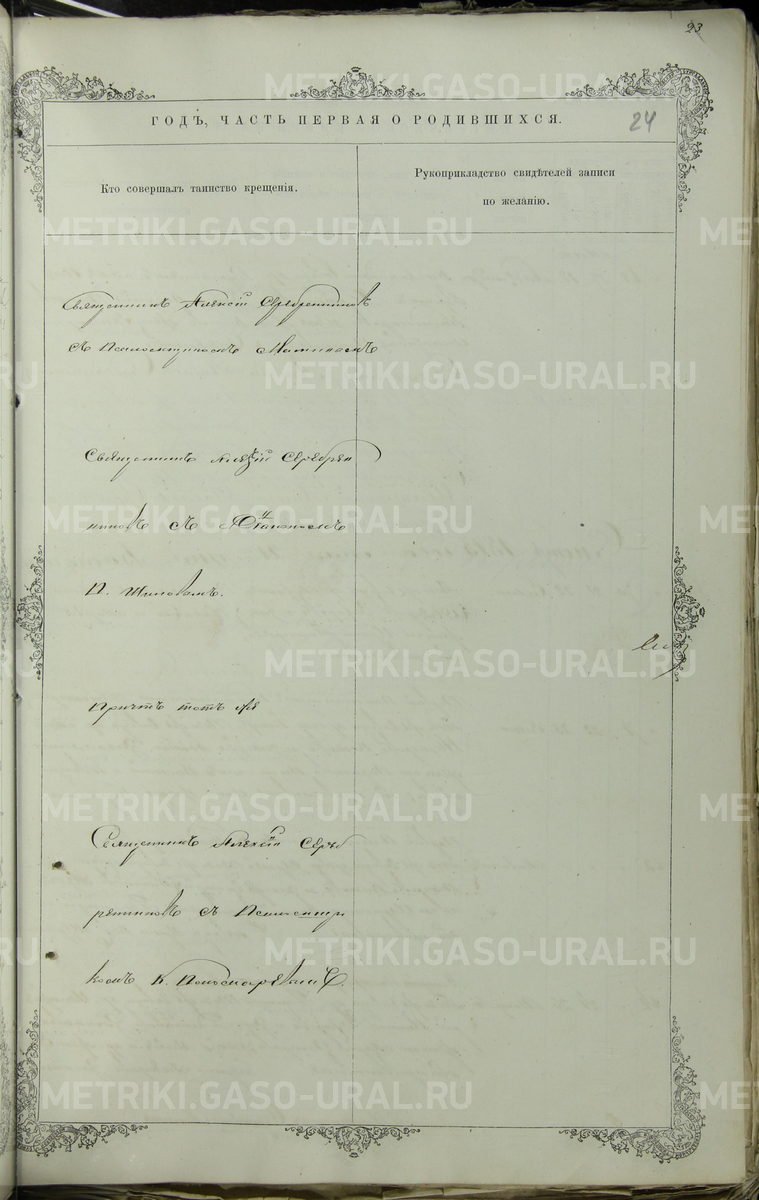 23
24
ГОДЪ, ЧАСТЬ ПЕРВАЯ О РОДИВШИХСЯ.
Кто совершалъ таинство крещенія.
Рукоприкладство свидѣтелей записи
по желанію.
Священникъ Алексій Серебренников
съ Псаломщикомъ
Священникъ Алексій Серебрен
ников съ
П. Шиловымъ.
Причтъ тотъ же
Священникъ Алексій Сереб
ренников съ Псаломщи
комъ К.
METRIKI.GASO-URAL.RU